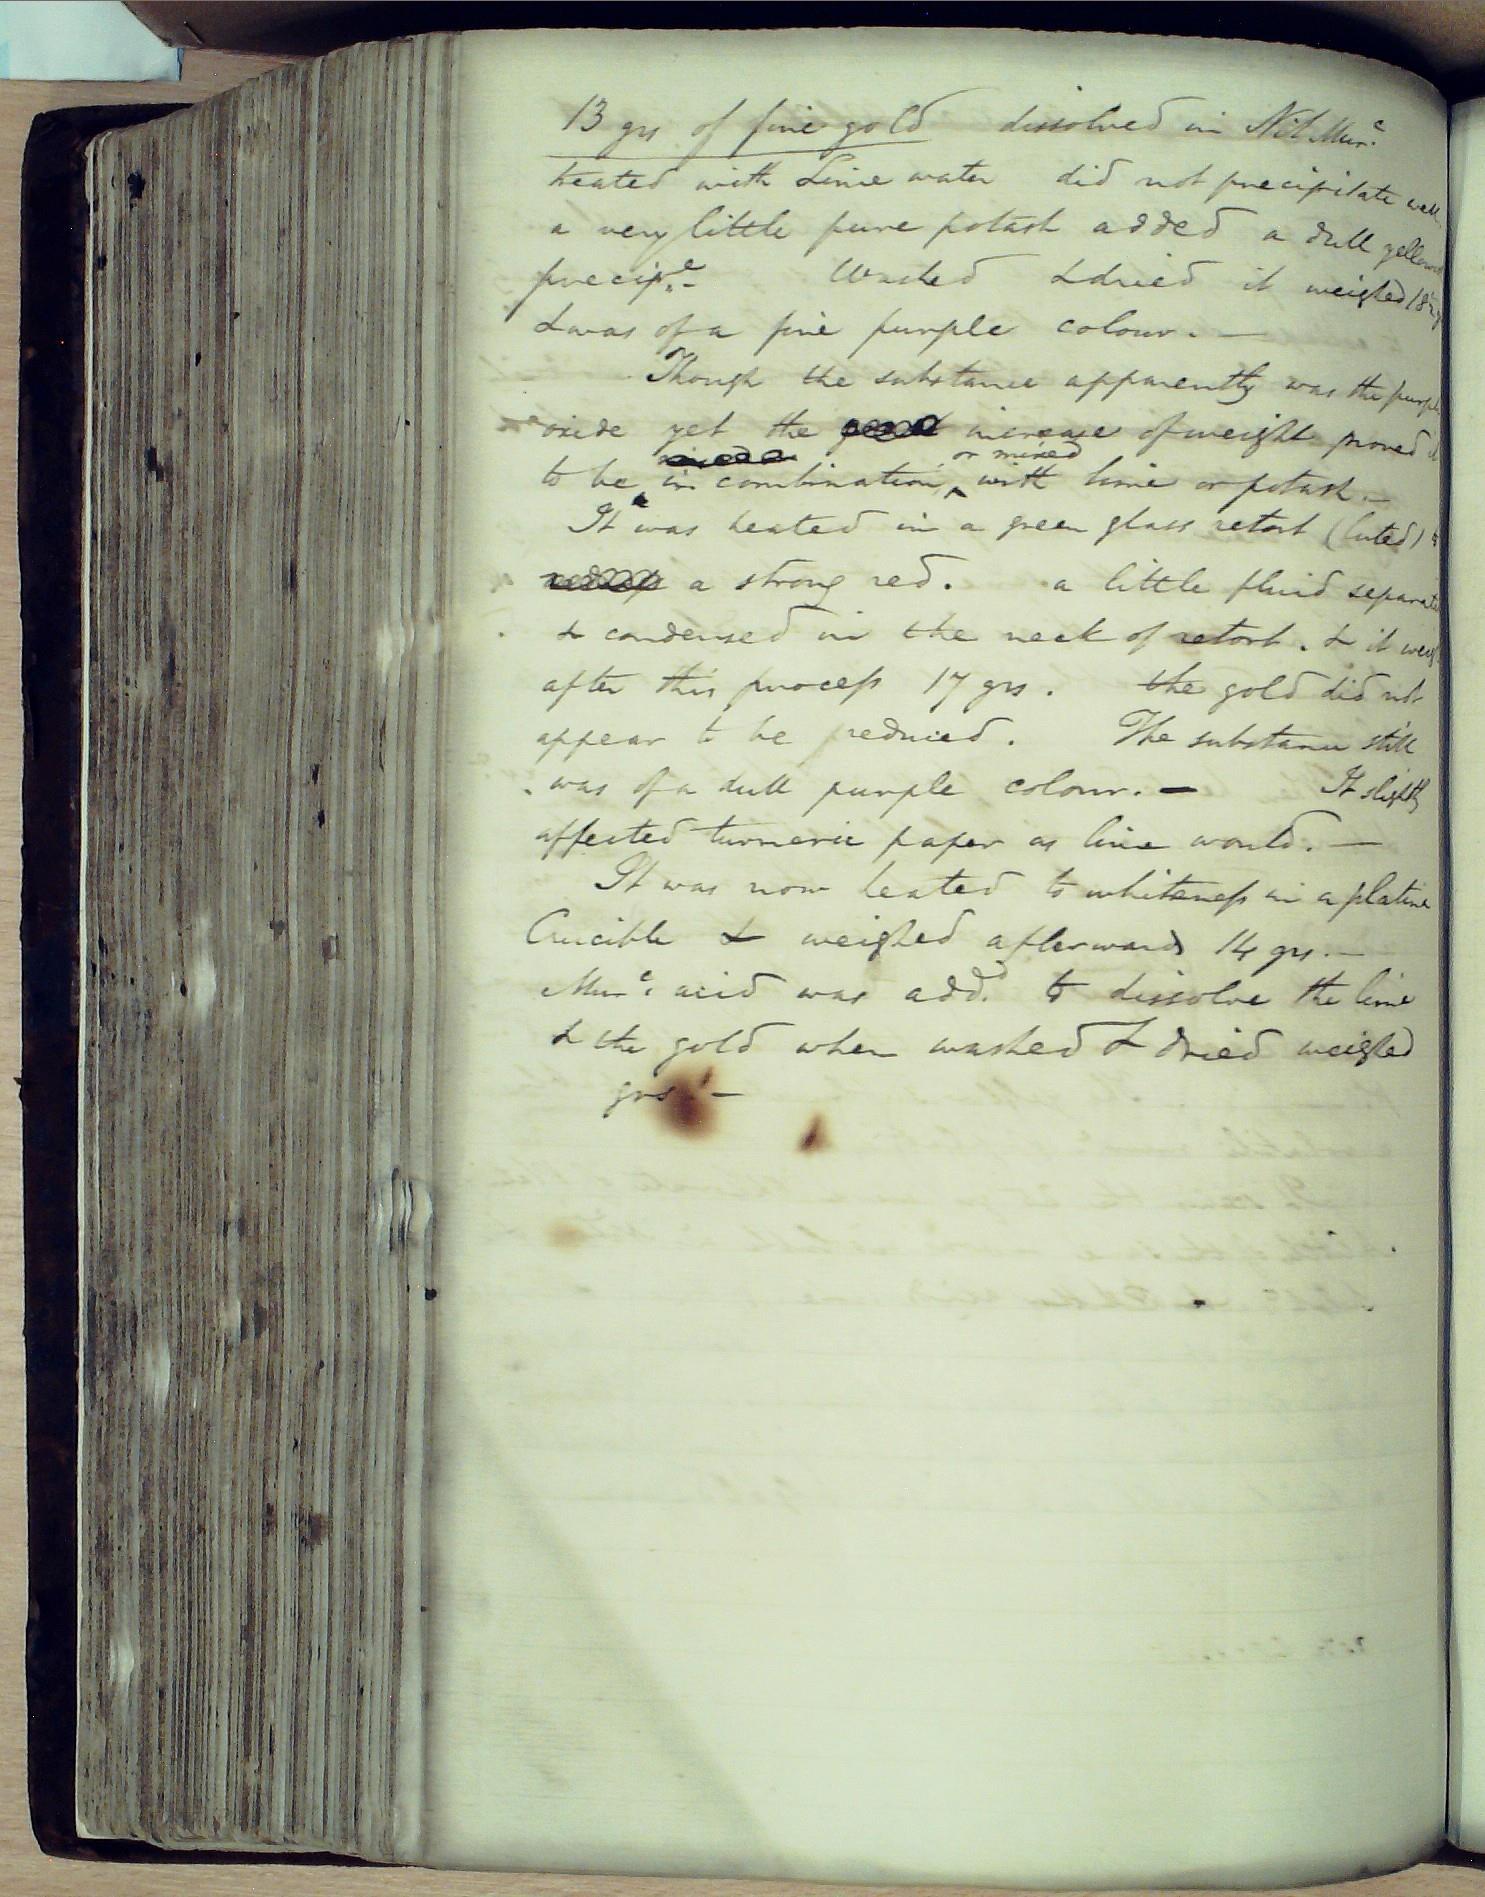 13 grs of fine gold dissolved in Nit. Mur.c
heated with Lime water did not precipitate well
a very little pure potash added a dull yellowish
precip.te Washed & dried it weighed 18
& was of a fine purple colour. —
Though the substance apparently was the purple
oxide yet the increase of weight proved it
to be in combination, or mixed with lime or potash. —
It was heated in a green glass retort (luted) to
a strong red. a little fluid separated
& condensed in the neck of retort. & it weighed
after this process 17 grs. the gold did not
appear to be reduced. The substance still
was of a dull purple colour. — It slightly
affected turmeric paper as lime would. —
It was now heated to whiteness in a platina
Crucible & weighed afterwards 14 grs. —
Mur.c acid was add.d to dissolve the lime
& the gold when washed & dried weighed
grs. —